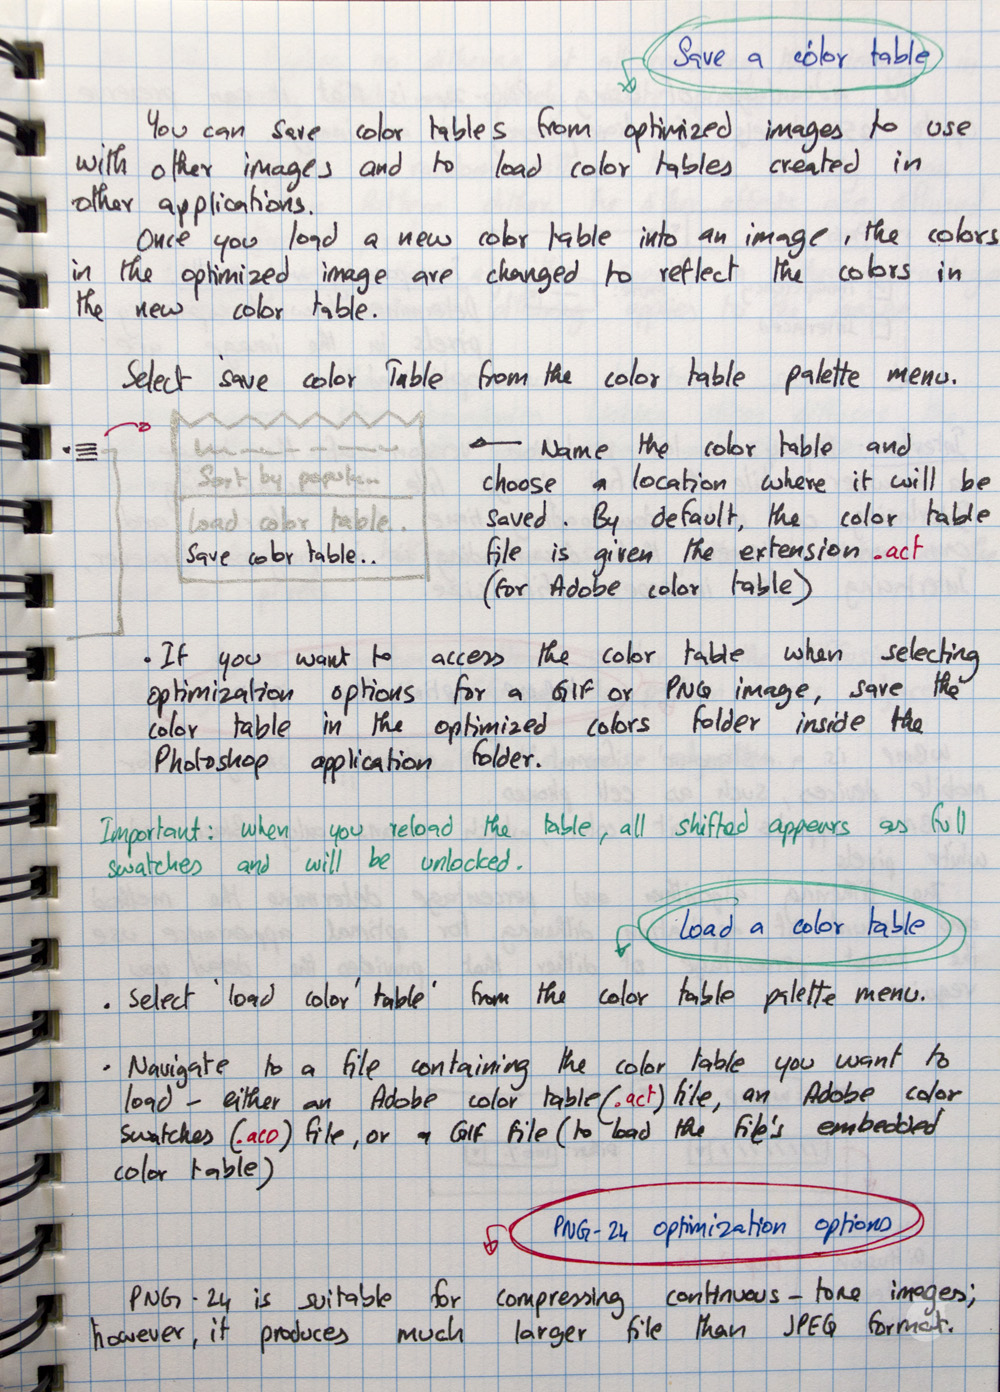 Save a color table
You can save color tables from optimized images to use
with other images and to load color tables created in
other applications.
Once you load a new color table into an image, the colors
in the optimized image are changed to reflect the colors in
the new color table.
Select 'save color Table from the color table palette menu.
Sort by popular..
load color table..
Save color table..
Name the color table and
choose a location where it will be
saved. By default, the color table
file is given the extension .act
(for Adobe color table)
• If you want to access the color table when selecting
optimization options for a GIF or PNG image, save the
color table in the optimized colors folder inside the
Photoshop application folder.
Important: when you reload the table, all shifted appears as full
swatches and will be unlocked.
Load a color table
• Select 'load color' table' from the color table palette menu.
• Navigate to a file containing the color table you want to
load - either an Adobe color table (.act) file, an Adobe color
swatches (.aco) file, or a GIF file (to load the file's embedded
color table)
PNG-24 optimization options
PNG-24 is suitable for compressing continuous-tone images;
however, it produces much larger file than JPEG format.